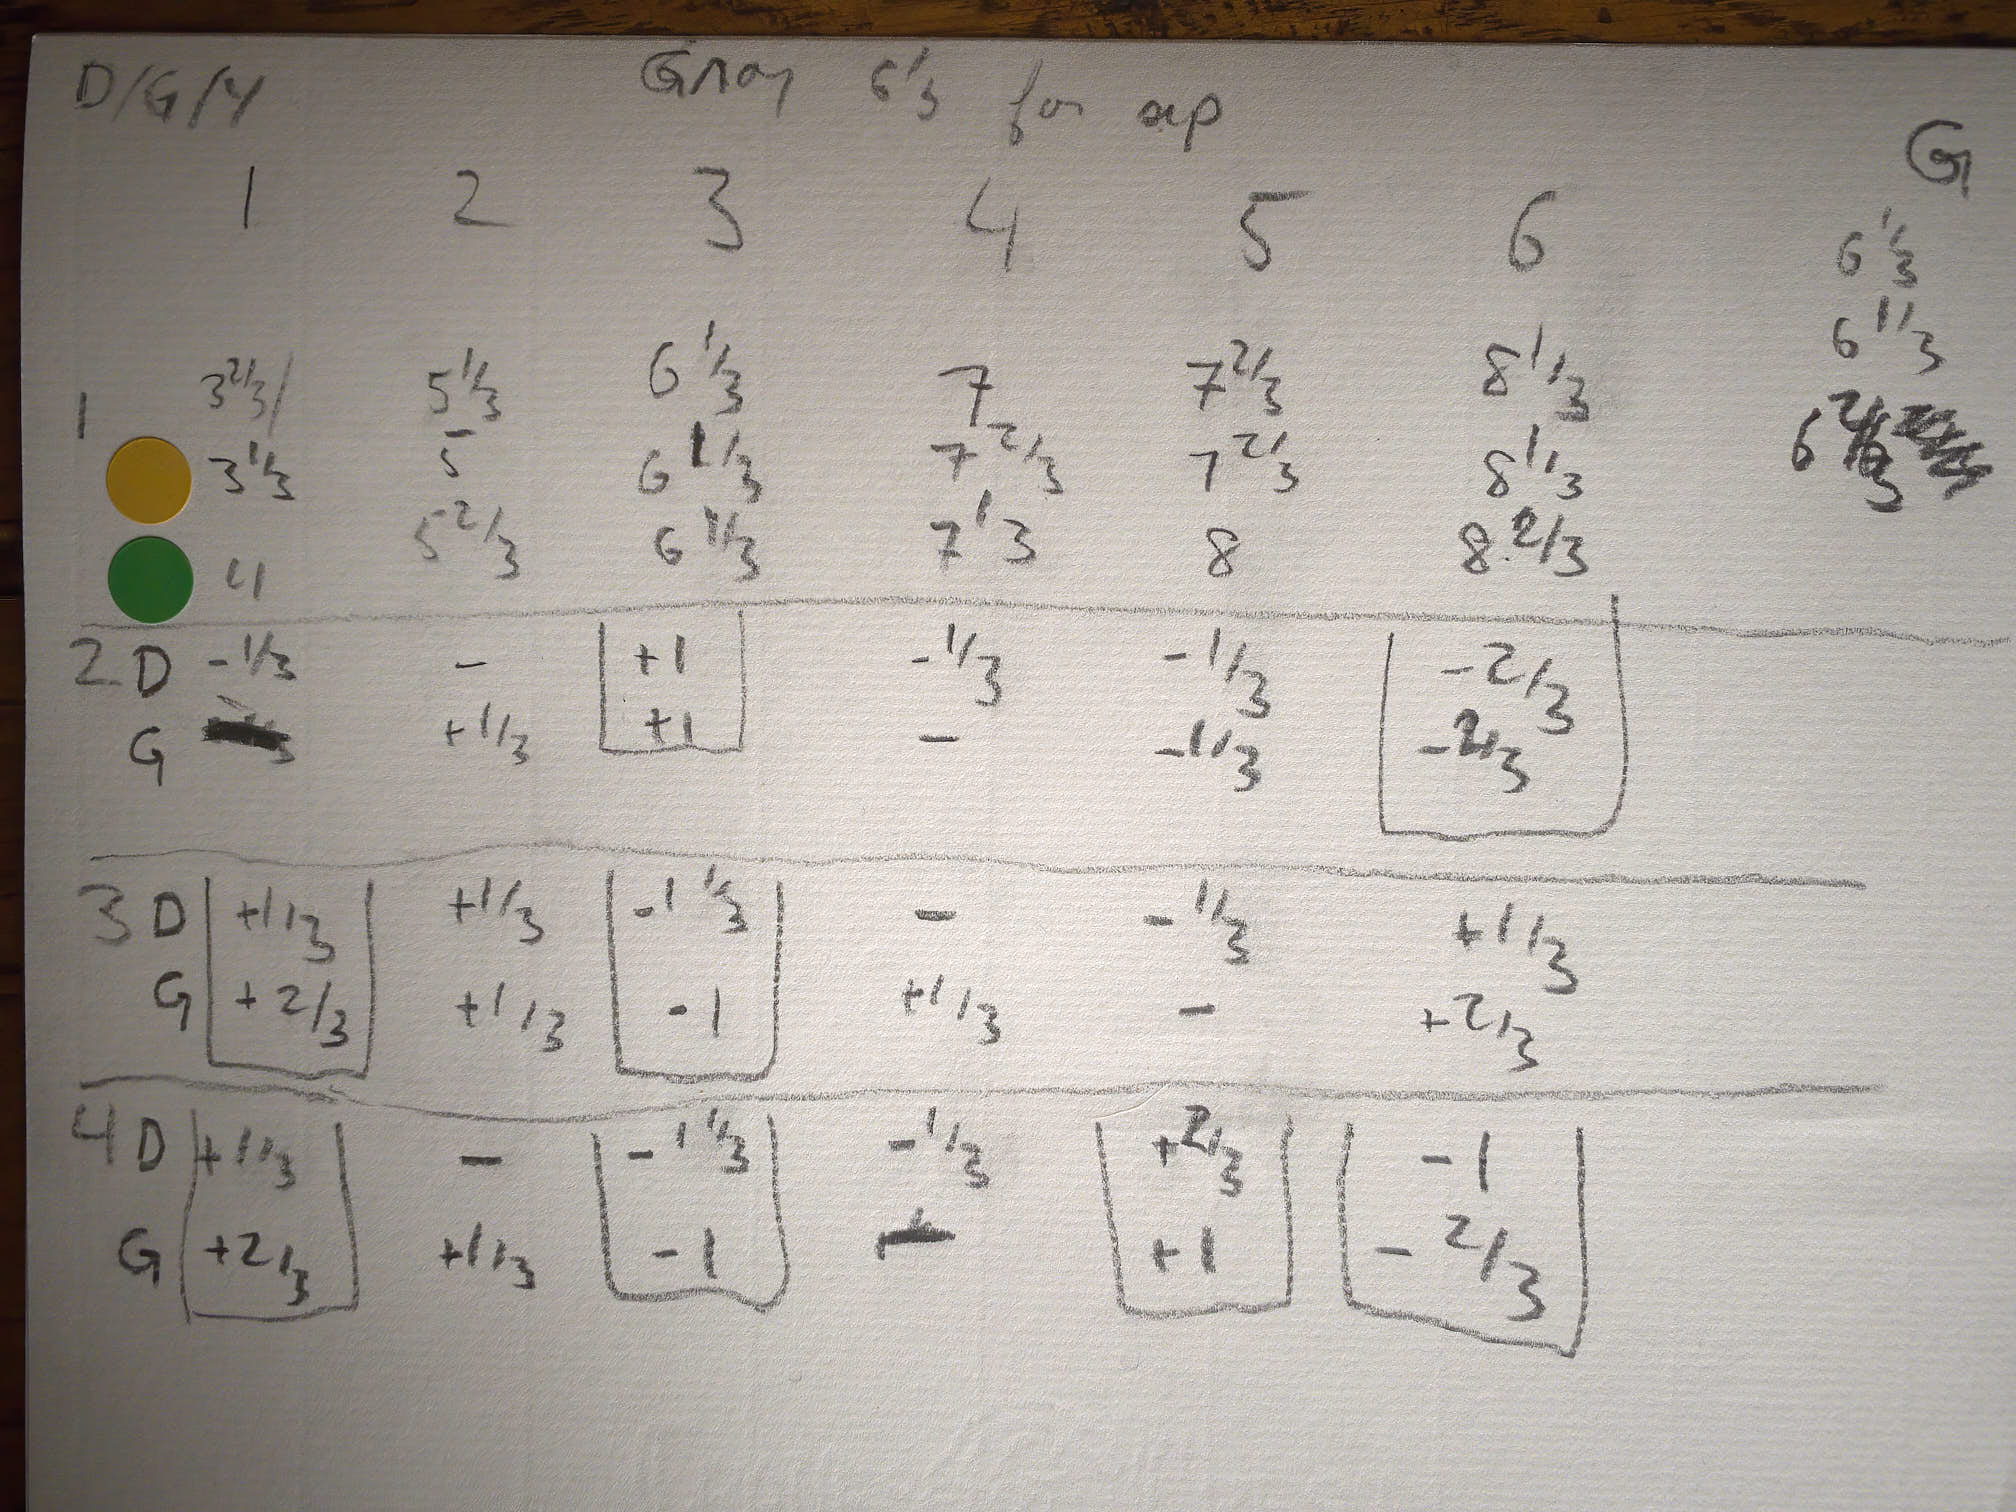 D/G/Y Gray 6 1/3 for
G
1 2 3 4 5 6
6 1/3
6 1/3
1 3 2/3 / 5 1/3 6 1/3 7 7 2/3 8 1/3
3 1/3 5 6 1/3 7 2/3 7 2/3 8 1/3 6
4 5 2/3 6 1/3 7 1 3 8 8 2/3
2 D -1/3 - +1 -1/3 -1/3 -2/3
G +1/3 +1 - -1/3 -2/3
3 D +1/3 +1/3 -1 1/3 - -1/3 +1/3
G +2/3 +1/3 -1 +1/3 - +2/3
4 D +1/3 - -1 1/3 -1/3 +2/3 -1
G +2/3 +1/3 -1 - +1 -2/3